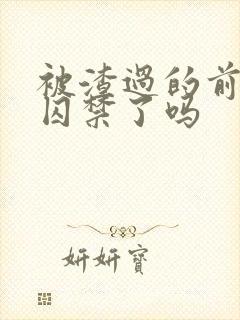 被渣过的前
囚禁了吗
妍妍寶